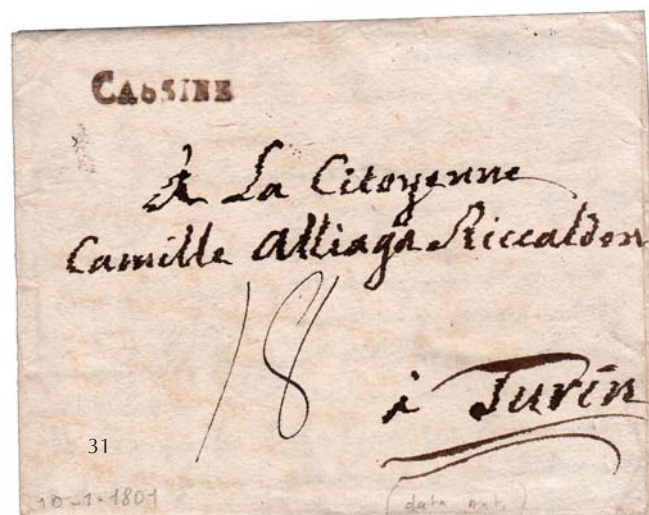 CASSINE
À La Citoyenne
Camille Alliaga Riccaldon
18
à Turin
31
10-1-1801
(data